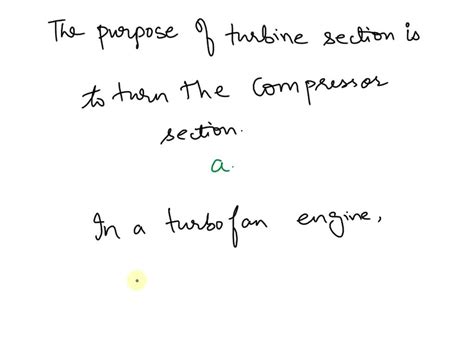 The purpose of turbine section is
to turn the compressor
section.
a.
In a turbofan engine,